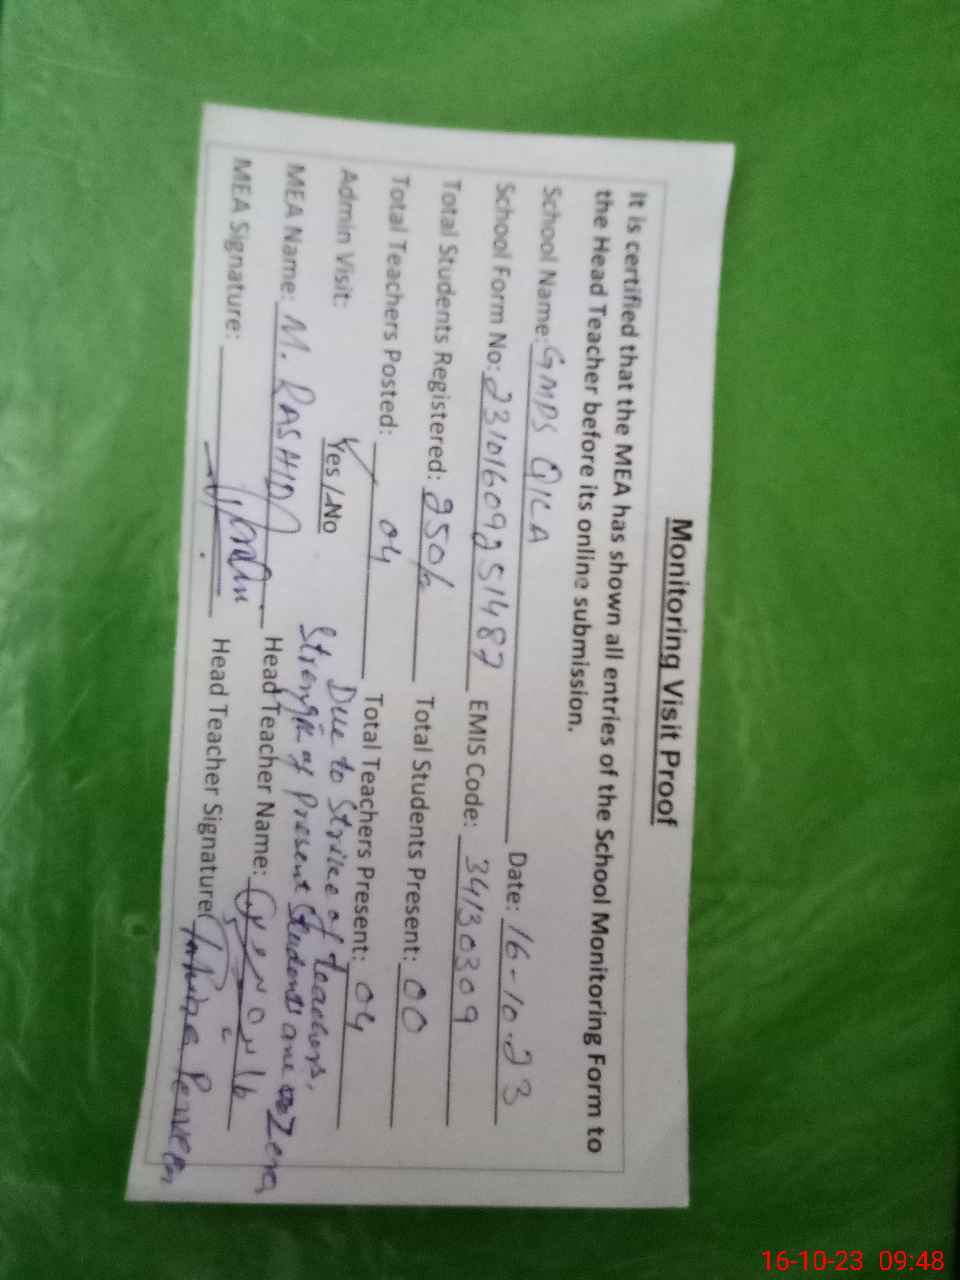 Monitoring Visit Proof
It is certified that the MEA has shown all entries of the School Monitoring Form to
the Head Teacher before its online submission.
School Name: GMPS QILA Date: 16-10-23
School Form No: 23101609251487 EMIS Code: 34130309
Total Students Registered: 250/- Total Students Present: 00
Total Teachers Posted: 04 Total Teachers Present: 04
Admin Visit: Yes / No Due to Strike of teachers,
Strength of Present Students are Zero
MEA Name: M. RASHID Head Teacher Name:
MEA Signature: Head Teacher Signature: Perveen
16-10-23 09:48